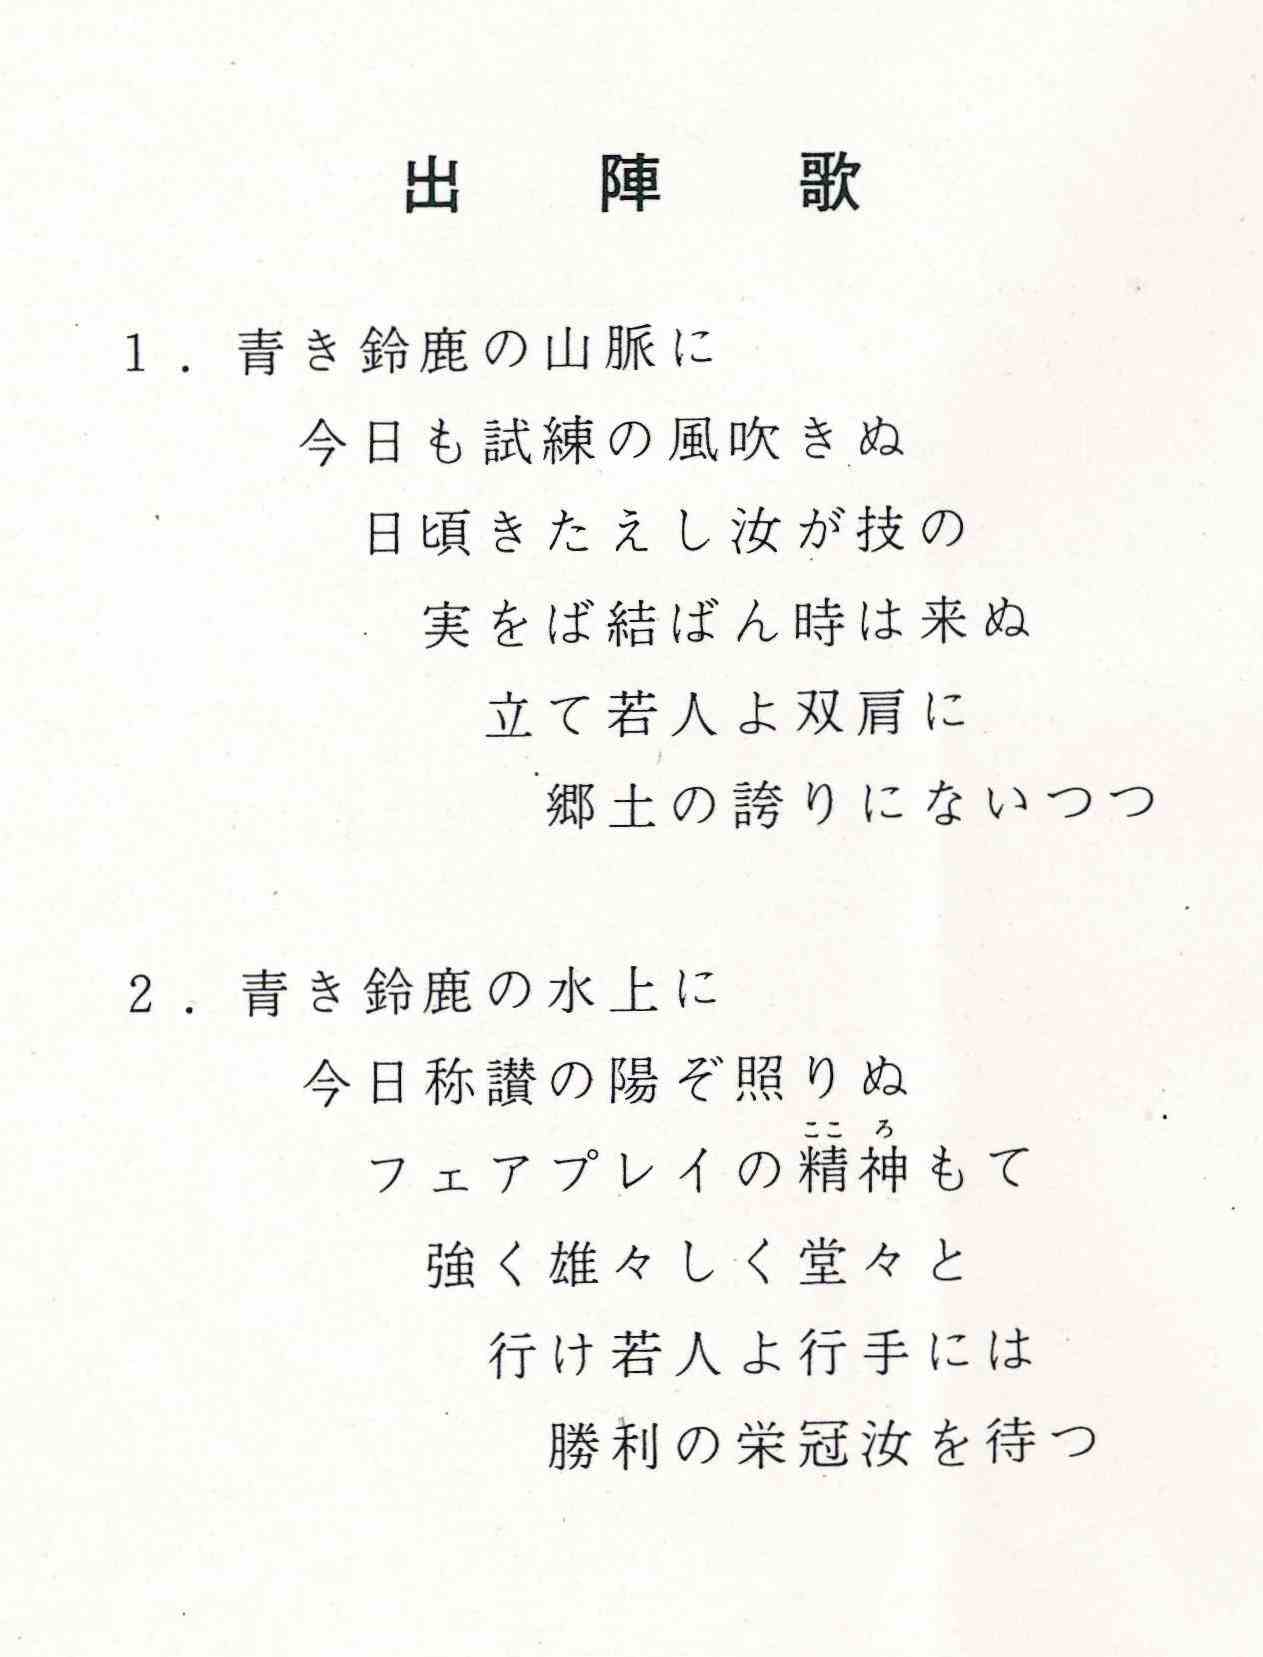 出陣歌
1．青き鈴鹿の山脈に
今日も試練の風吹きぬ
日頃きたえし汝が技の
実をば結ばん時は来ぬ
立て若人よ双肩に
郷土の誇りにないつつ
2．青き鈴鹿の水上に
今日称讃の陽ぞ照りぬ
こころ
フェアプレイの精神もて
強く雄々しく堂々と
行け若人よ行手には
勝利の栄冠汝を待つ